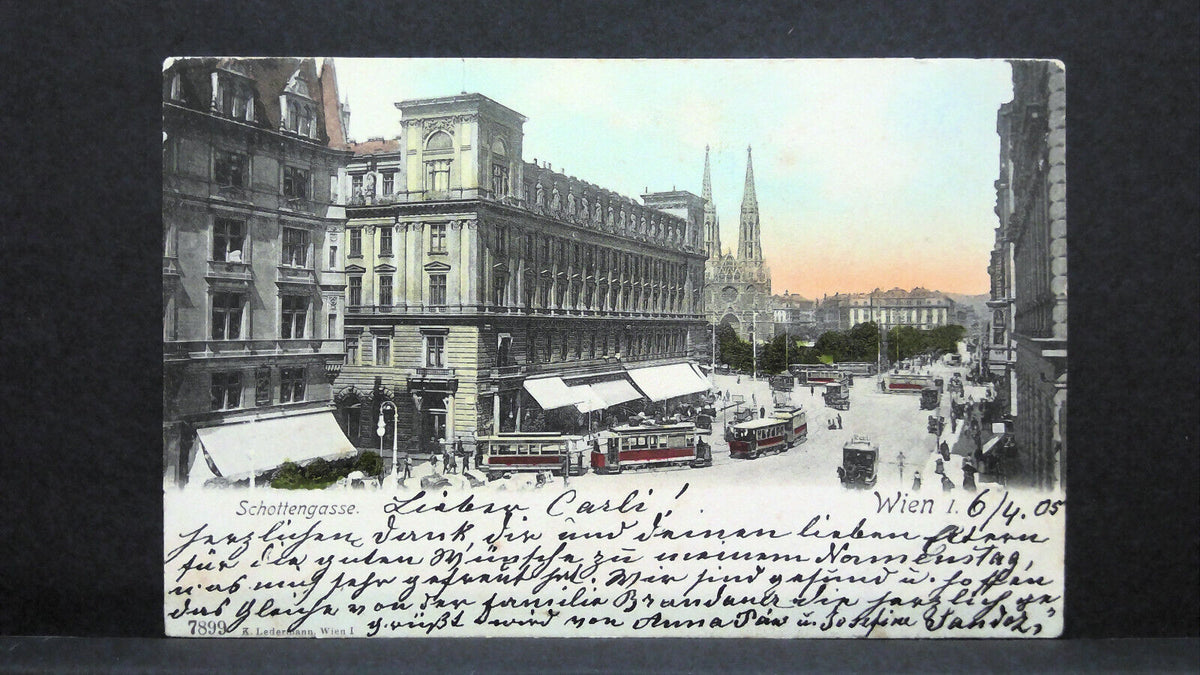 Schottengasse.
Wien I. 6/4. 05
Lieber Carli!
herzlichen Dank dir und deinen lieben Eltern
für die guten Wünsche zu meinem Namenstag,
was mich sehr gefreut hat. Wir sind gesund u. hoffen
das Gleiche von der Familie die herzlich ge
grüßt wird von Anna u. Josefine
7899 K. Ledermann, Wien I